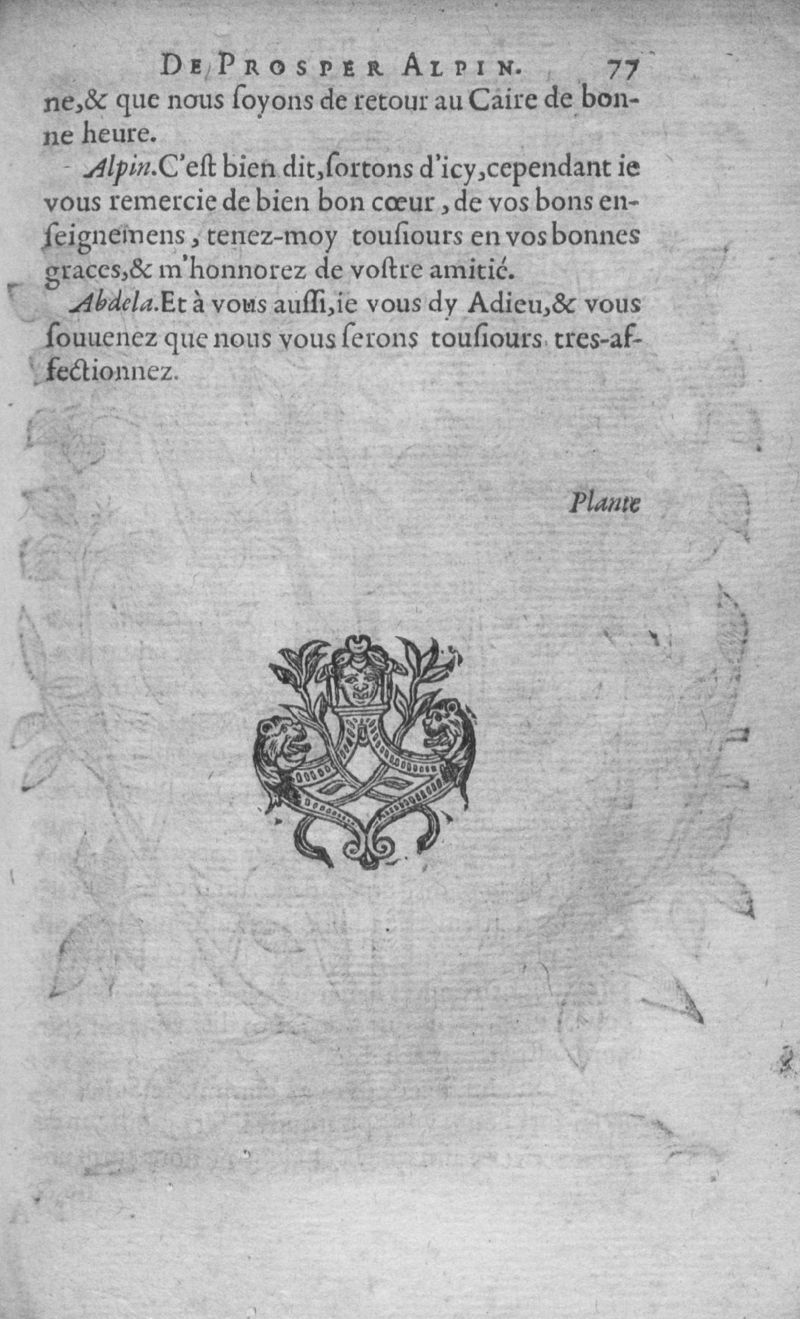 DE PROSPER ALPIN. 77
ne,& que nous ſoyons de retour au Caire de bon-
ne heure.
Alpin. C'eſt bien dit, ſortons d'icy, cependant ie
vous remercie de bien bon cœur, de vos bons en-
ſeignemens, tenez-moy touſiours en vos bonnes
graces,& m'honnorez de voſtre amitié.
Abdela. Et à vous auſſi, ie vous dy Adieu,& vous
ſouuenez que nous vous ſerons touſiours tres-af-
fectionnez.
Plante